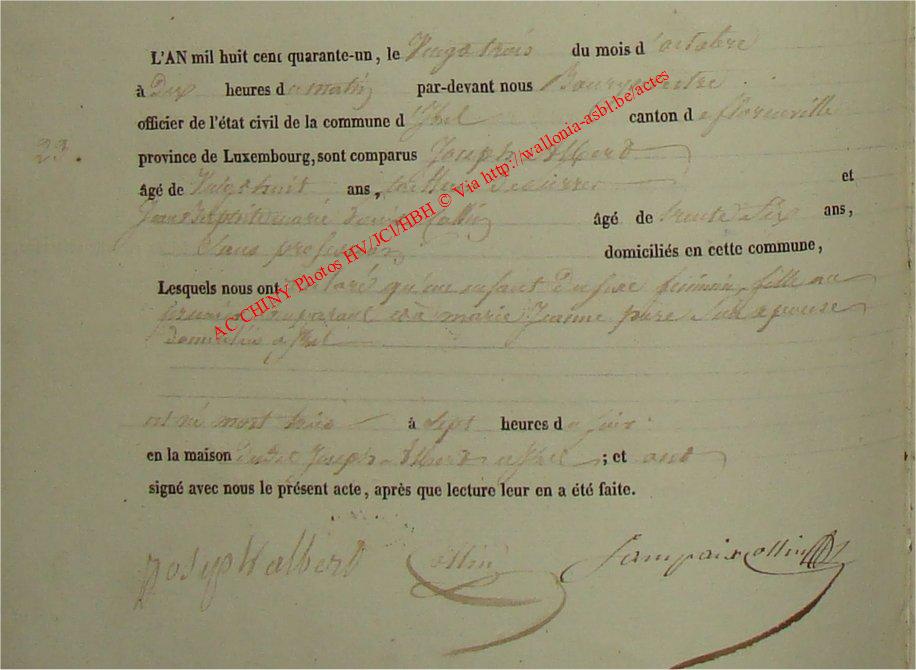 L'AN mil huit cent quarante-un, le Vingt trois du mois d'octobre
à Dix heures du matin par-devant nous Bourgmestre
officier de l'état civil de la commune d'Izel canton de florenville
23.
province de Luxembourg, sont comparus Joseph Albert
âgé de Vingt huit ans, et
Jean Baptiste marié Collin âgé de trente Six ans,
Sans profession domiciliés en cette commune,
Lesquels nous ont déclaré qu'un enfant Du sexe féminin, fille au
premier comparant et à marie Jeanne Son épouse
Domiciliés à Izel
est né mort hier à Sept heures du soir
en la maison Joseph Albert a Izel ; et ont
signé avec nous le présent acte, après que lecture leur en a été faite.
Joseph albert Collin Jampaix Collin
AC CHINY Photos HV/JCI/HBH © Via http://wallonia-asbl.be/actes